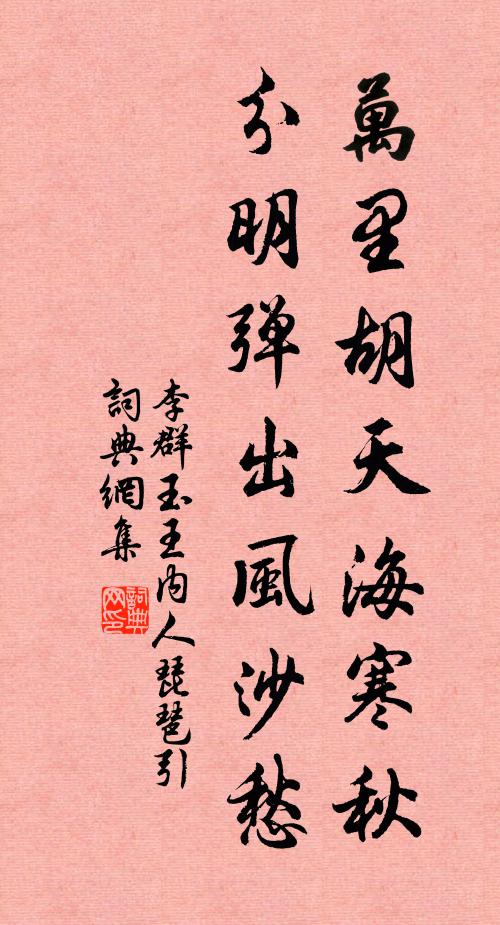 萬里胡天海寒秋
分明弹出風沙愁
李群玉王内人琵琶引
詞典網集
詞典网印